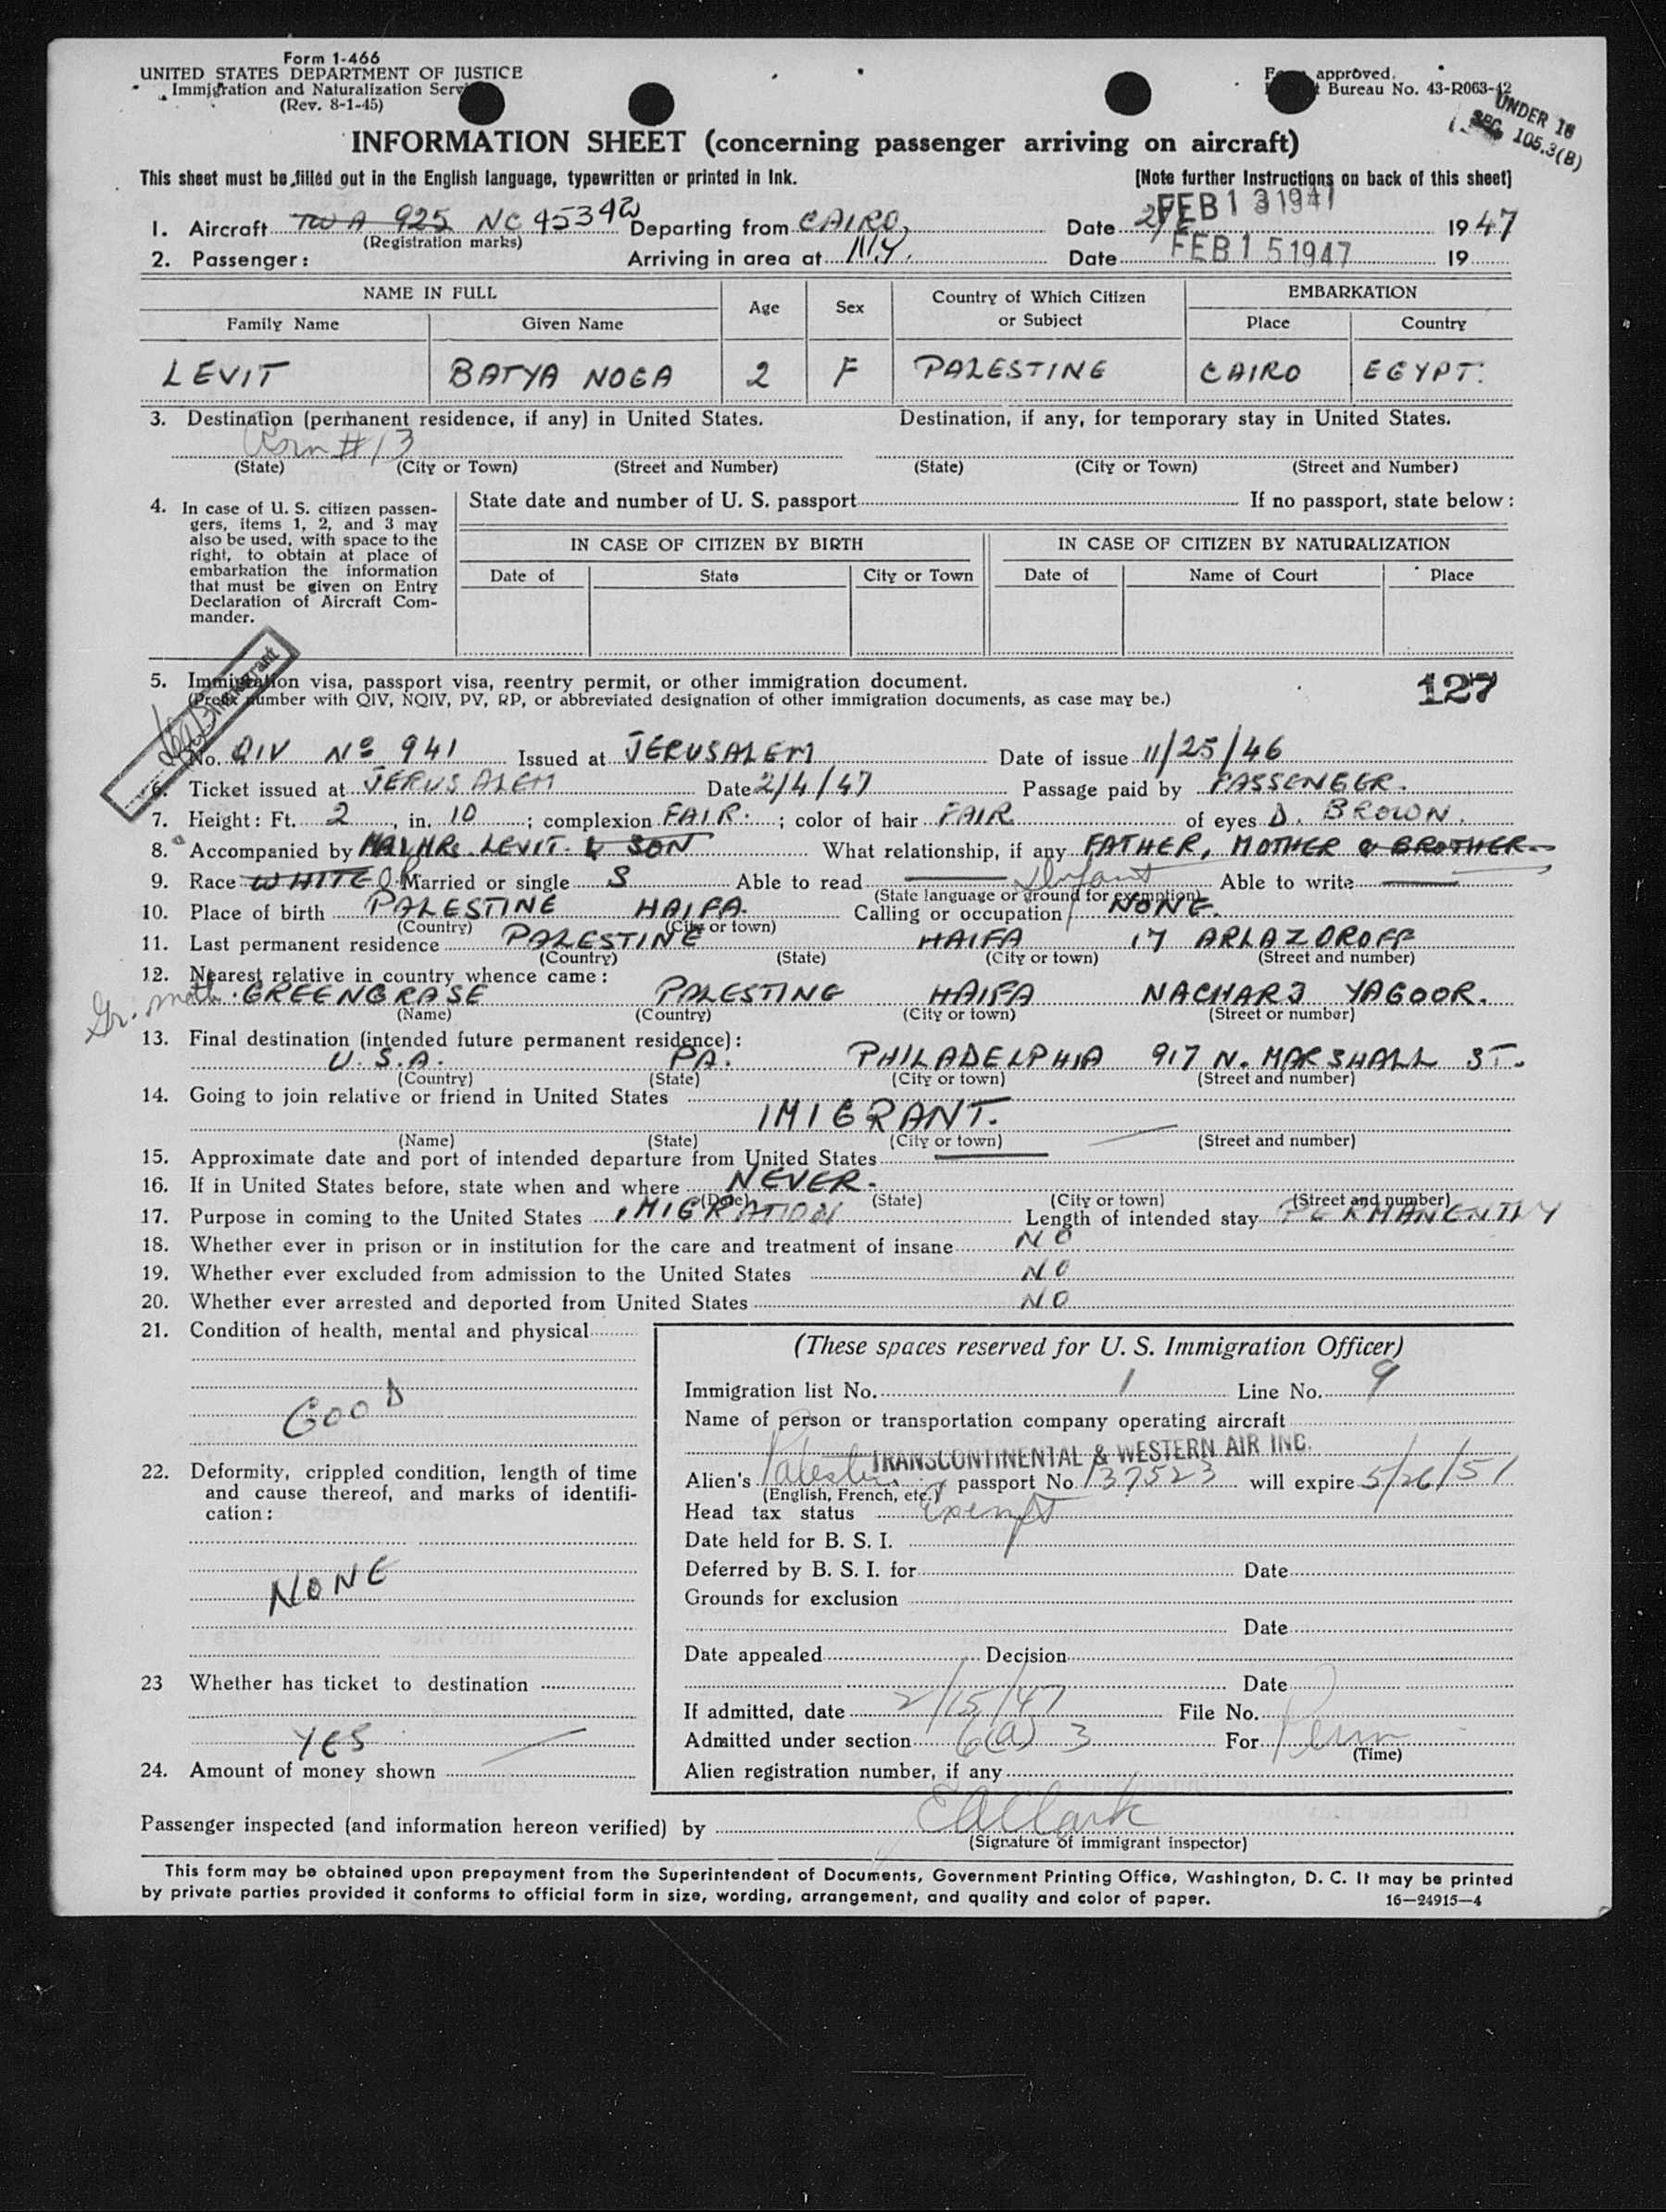 Form 1-466
UNITED STATES DEPARTMENT OF JUSTICE
Immigration and Naturalization Serv
(Rev. 8-1-45)
approved.
Bureau No. 43-R063-42
UNDER 16
SEC. 105.3(B)
INFORMATION SHEET (concerning passenger arriving on aircraft)
This sheet must be filled out in the English language, typewritten or printed in ink.
[Note further Instructions on back of this sheet]
1. Aircraft TWA 925 NC 45342 Departing from CAIRO, Date FEB 13 1947 1947
(Registration marks)
2. Passenger: Arriving in area at N.Y. Date FEB 15 1947 19
NAME IN FULL Age Sex Country of Which Citizen or Subject EMBARKATION
Family Name Given Name Place Country
LEVIT BATYA NOGA 2 F PALESTINE CAIRO EGYPT.
3. Destination (permanent residence, if any) in United States. Destination, if any, for temporary stay in United States.
#13
(State) (City or Town) (Street and Number) (State) (City or Town) (Street and Number)
4. In case of U. S. citizen passen-
gers, items 1, 2, and 3 may
also be used, with space to the
right, to obtain at place of
embarkation the information
that must be given on Entry
Declaration of Aircraft Com-
mander.
State date and number of U. S. passport If no passport, state below:
IN CASE OF CITIZEN BY BIRTH IN CASE OF CITIZEN BY NATURALIZATION
Date of State City or Town Date of Name of Court Place
5. Immigration visa, passport visa, reentry permit, or other immigration document.
(Prefix number with QIV, NQIV, PV, RP, or abbreviated designation of other immigration documents, as case may be.)
127
No. QIV No 941 Issued at JERUSALEM Date of issue 11/25/46
6. Ticket issued at JERUSALEM Date 2/4/47 Passage paid by PASSENGER.
7. Height: Ft. 2, in. 10; complexion FAIR.; color of hair FAIR of eyes D. BROWN.
8. Accompanied by MR. LEVIT. & SON What relationship, if any FATHER, MOTHER & BROTHER
9. Race WHITE Married or single S Able to read Infant Able to write
(State language or ground for exemption)
10. Place of birth PALESTINE HAIFA. Calling or occupation NONE.
(Country) (City or town)
11. Last permanent residence PALESTINE HAIFA 17 ARLAZOROFF
(Country) (State) (City or town) (Street and number)
12. Nearest relative in country whence came:
Gr. moth. GREENGRASE PALESTINE HAIFA NACHARJ YAGOOR.
(Name) (Country) (City or town) (Street or number)
13. Final destination (intended future permanent residence):
U.S.A. PA. PHILADELPHIA 917 N. MARSHALL ST.
(Country) (State) (City or town) (Street and number)
14. Going to join relative or friend in United States
IMIGRANT.
(Name) (State) (City or town) (Street and number)
15. Approximate date and port of intended departure from United States
16. If in United States before, state when and where NEVER.
(Date) (State) (City or town) (Street and number)
17. Purpose in coming to the United States IMIGRATION Length of intended stay PERMANENTLY
18. Whether ever in prison or in institution for the care and treatment of insane NO
19. Whether ever excluded from admission to the United States NO
20. Whether ever arrested and deported from United States NO
21. Condition of health, mental and physical
GOOD
22. Deformity, crippled condition, length of time
and cause thereof, and marks of identifi-
cation:
NONE
23 Whether has ticket to destination
YES
24. Amount of money shown
(These spaces reserved for U. S. Immigration Officer)
Immigration list No. 1 Line No. 9
Name of person or transportation company operating aircraft
TRANSCONTINENTAL & WESTERN AIR INC.
Alien's passport No. 137523 will expire 5/26/51
(English, French, etc.)
Head tax status Exempt
Date held for B. S. I.
Deferred by B. S. I. for Date
Grounds for exclusion
Date
Date appealed Decision
Date
If admitted, date 2/15/47 File No.
Admitted under section 6(a) 3 For Perm
(Time)
Alien registration number, if any
Passenger inspected (and information hereon verified) by EAClark
(Signature of immigrant inspector)
This form may be obtained upon prepayment from the Superintendent of Documents, Government Printing Office, Washington, D. C. It may be printed
by private parties provided it conforms to official form in size, wording, arrangement, and quality and color of paper. 16—24915—4